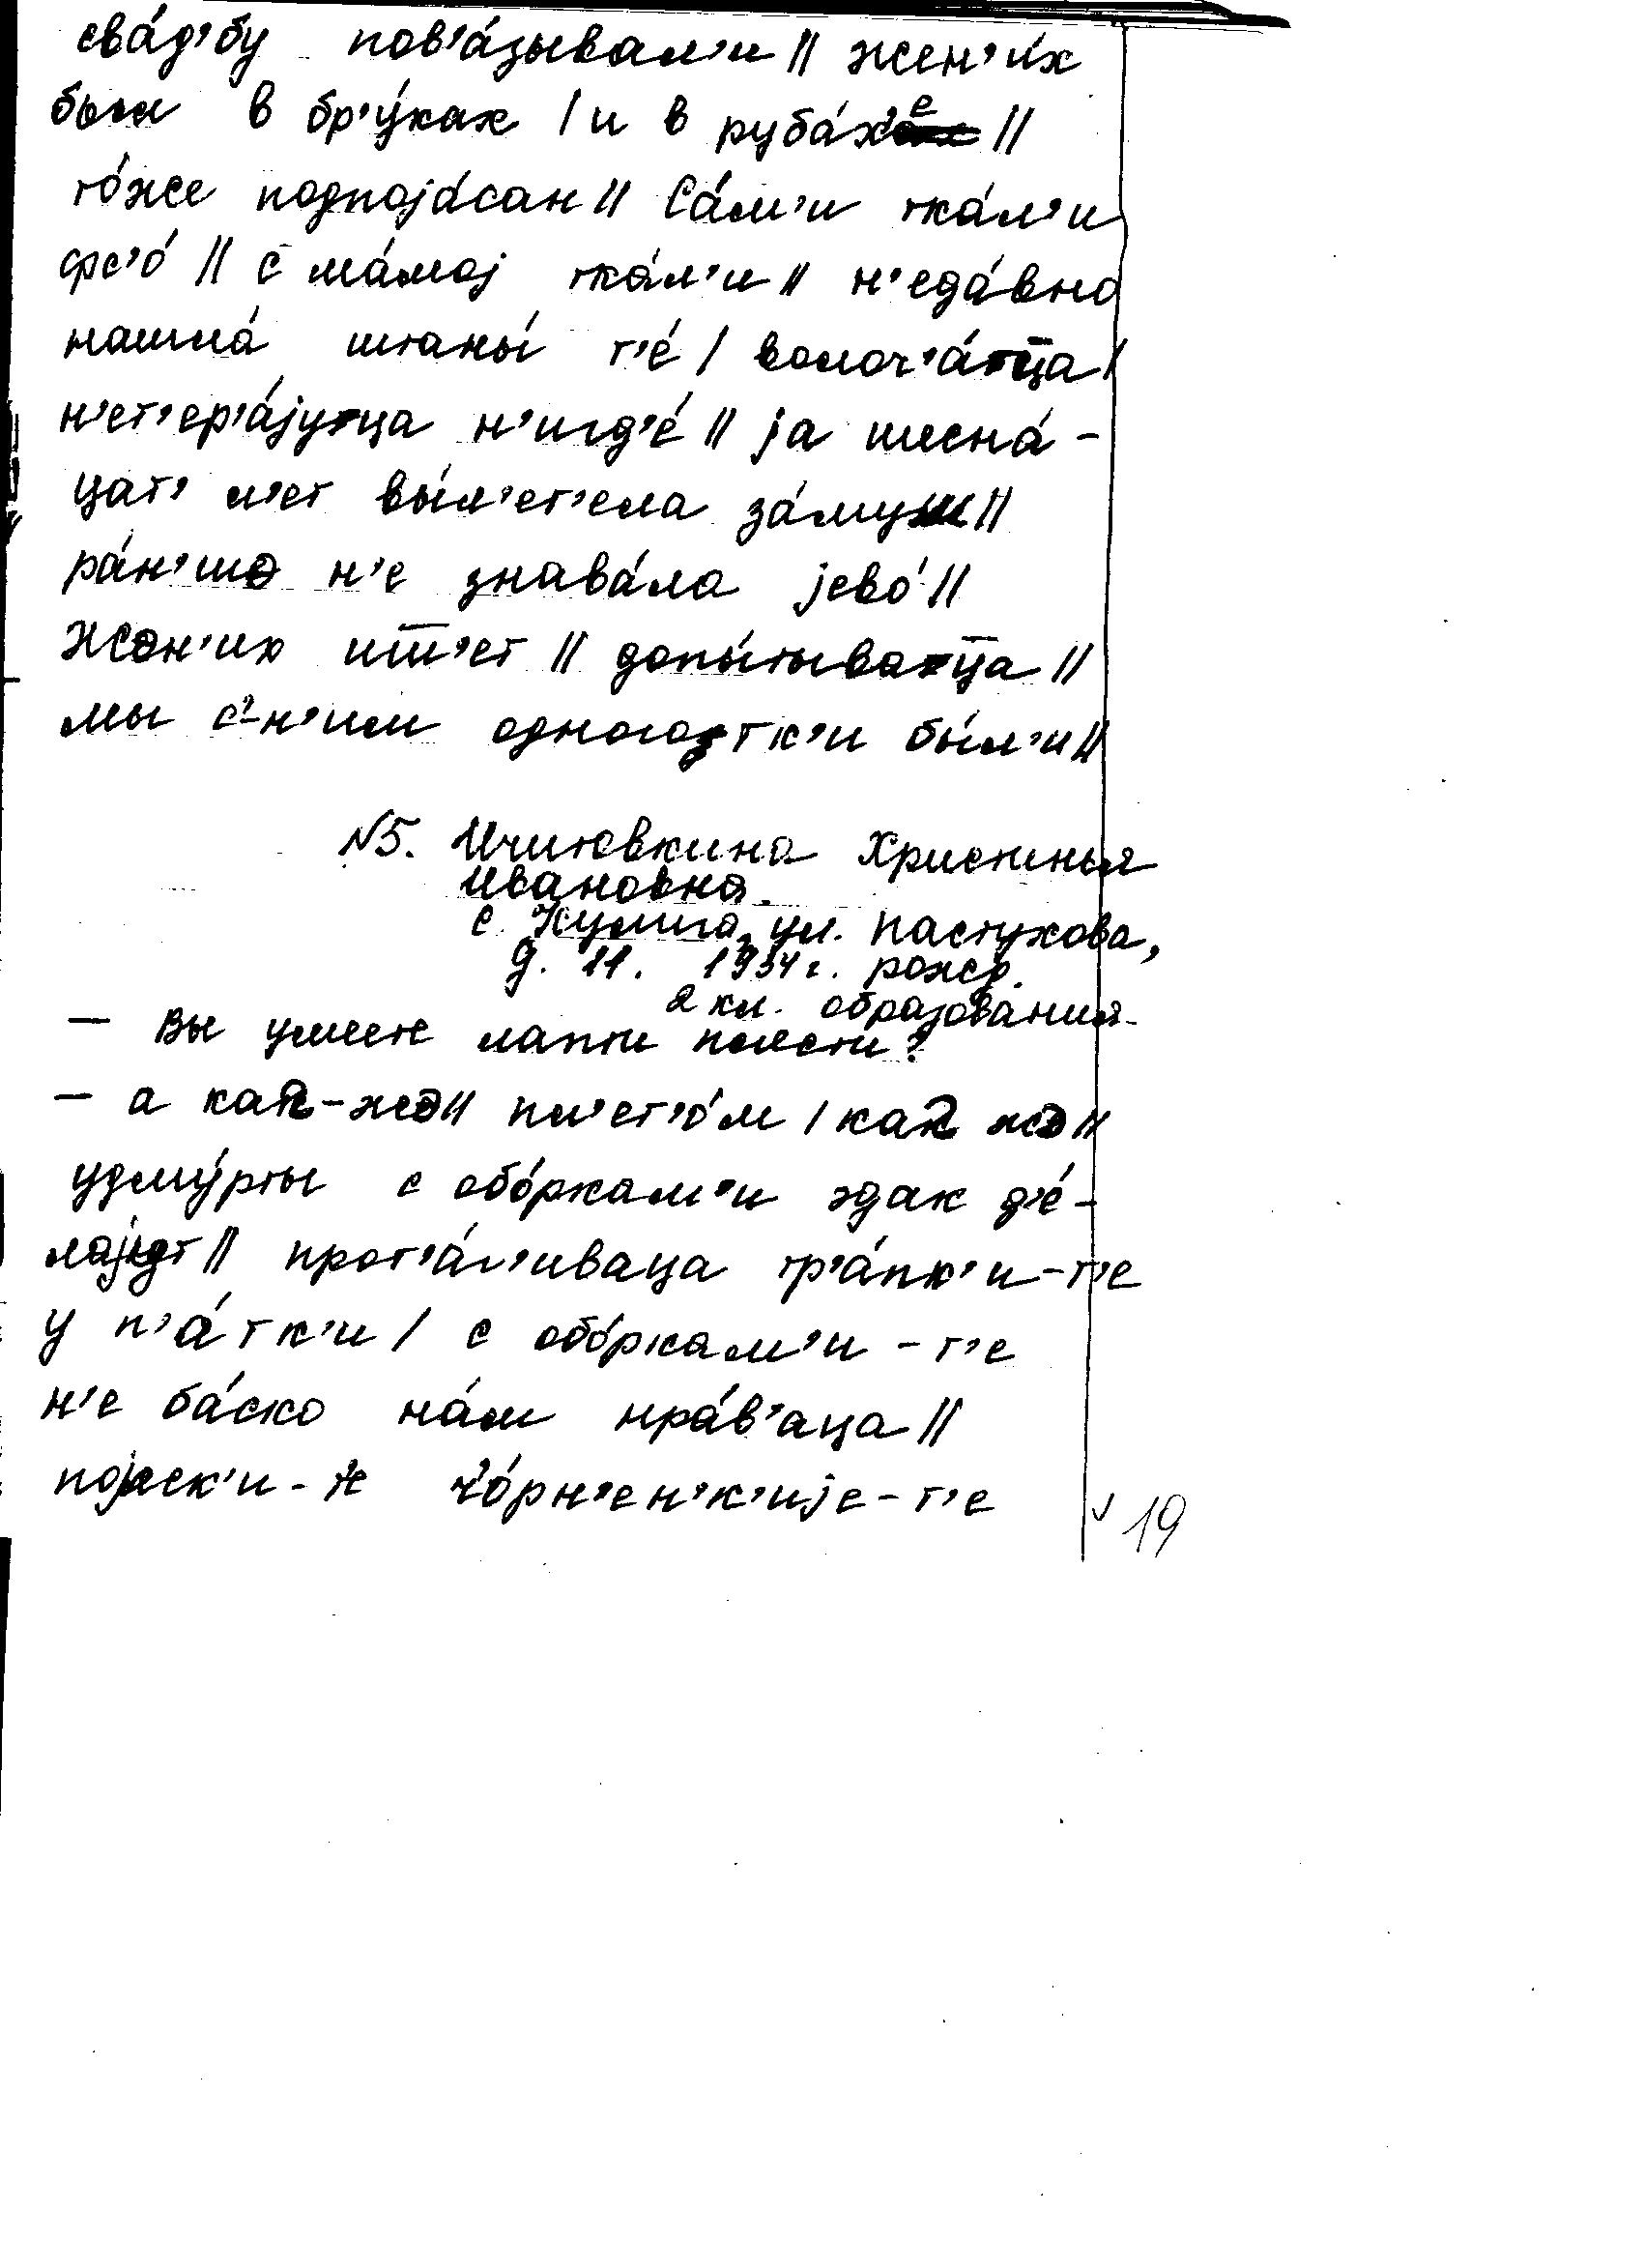 сва́д’бу пов’а́зывал’и || жен’и́х
был в бр’у́ках | и в руба́х’е ||
то́же подпоја́сан || Са́м’и тка́л’и
фс’о́ || с ма́мој тка́л’и || н’еда́вно
нашла́ штаны́ т’е́ | волоч’а́ц̅а |
н’ет’ер’а́јуца н’игд’е́ || ја шесна́-
цат’ л’ет вы́л’ет’ела за́муш ||
ра́н’шэ н’е знава́ла јево́ ||
Жэн’их иш̅’ет || допы́тывац̅а ||
мы с’-н’им одноготк’и бы́л’и ||
№5. Ичитовкина Христинья
Ивановна.
с. Кулига, ул. Пастухова,
д. 11. 1934 г. рожд.
2 кл. образования.
— Вы умеете лапти плести?
— а как-жэ || пл’ет’о́м | как жэ ||
удму́рты с обо́ркам’и эдак д’е́-
лајут || прот’а́г’иваца тр’а́пк’и-т’е
у п’а́тк’и | с обо́ркам’и - т’е
н’е ба́ско на́м нра́в’аца ||
појаск’и - т’е ч’о́рн’ен’к’ије - т’е
19